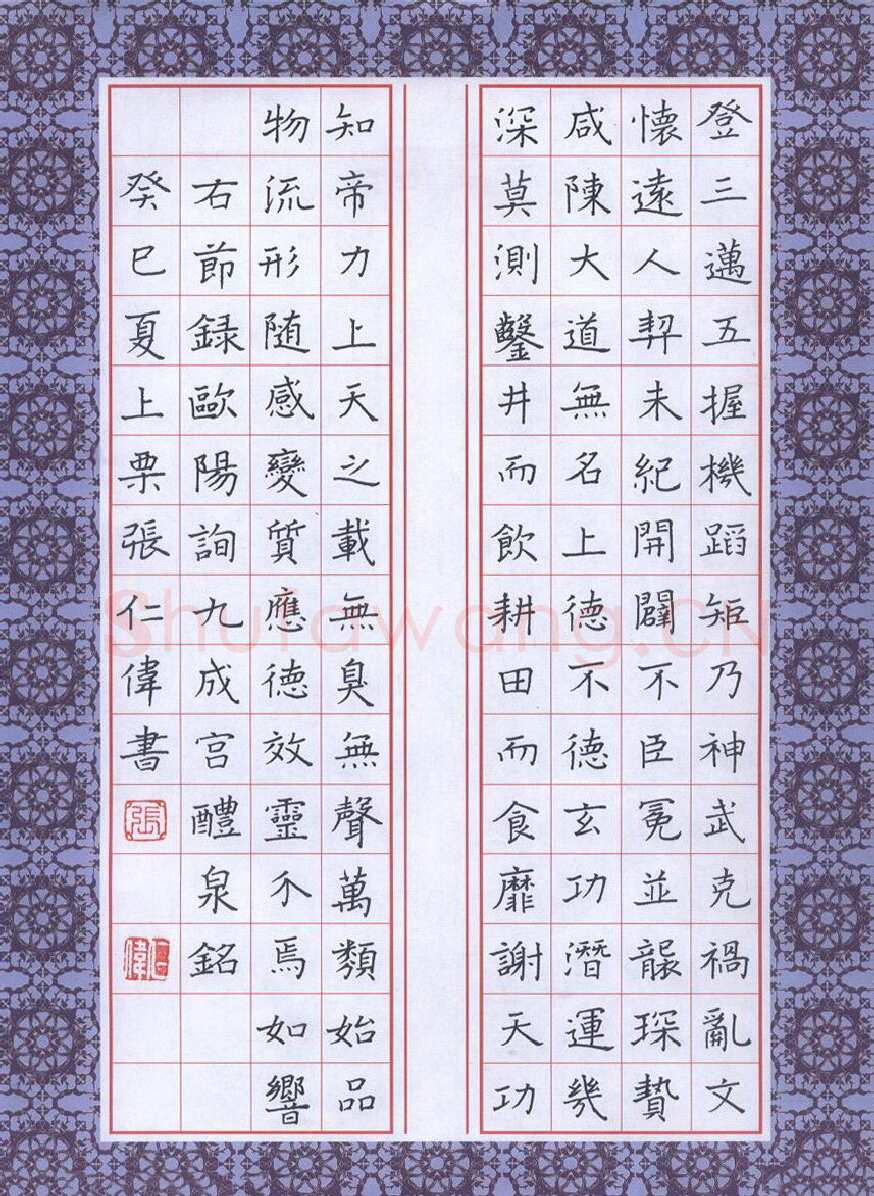 登三邁五握機蹈矩乃神武克禍亂文
懷遠人契未紀開闢不臣冕並襲琛贄
咸陳大道無名上德不德玄功潛運幾
深莫測鑿井而飲耕田而食靡謝天功
知帝力上天之載無臭無聲萬類始品
物流形随感變質應德效靈介焉如響
右節録歐陽詢九成宮醴泉銘
癸巳夏上栗張仁偉書
張
仁偉
Shufawang.CN